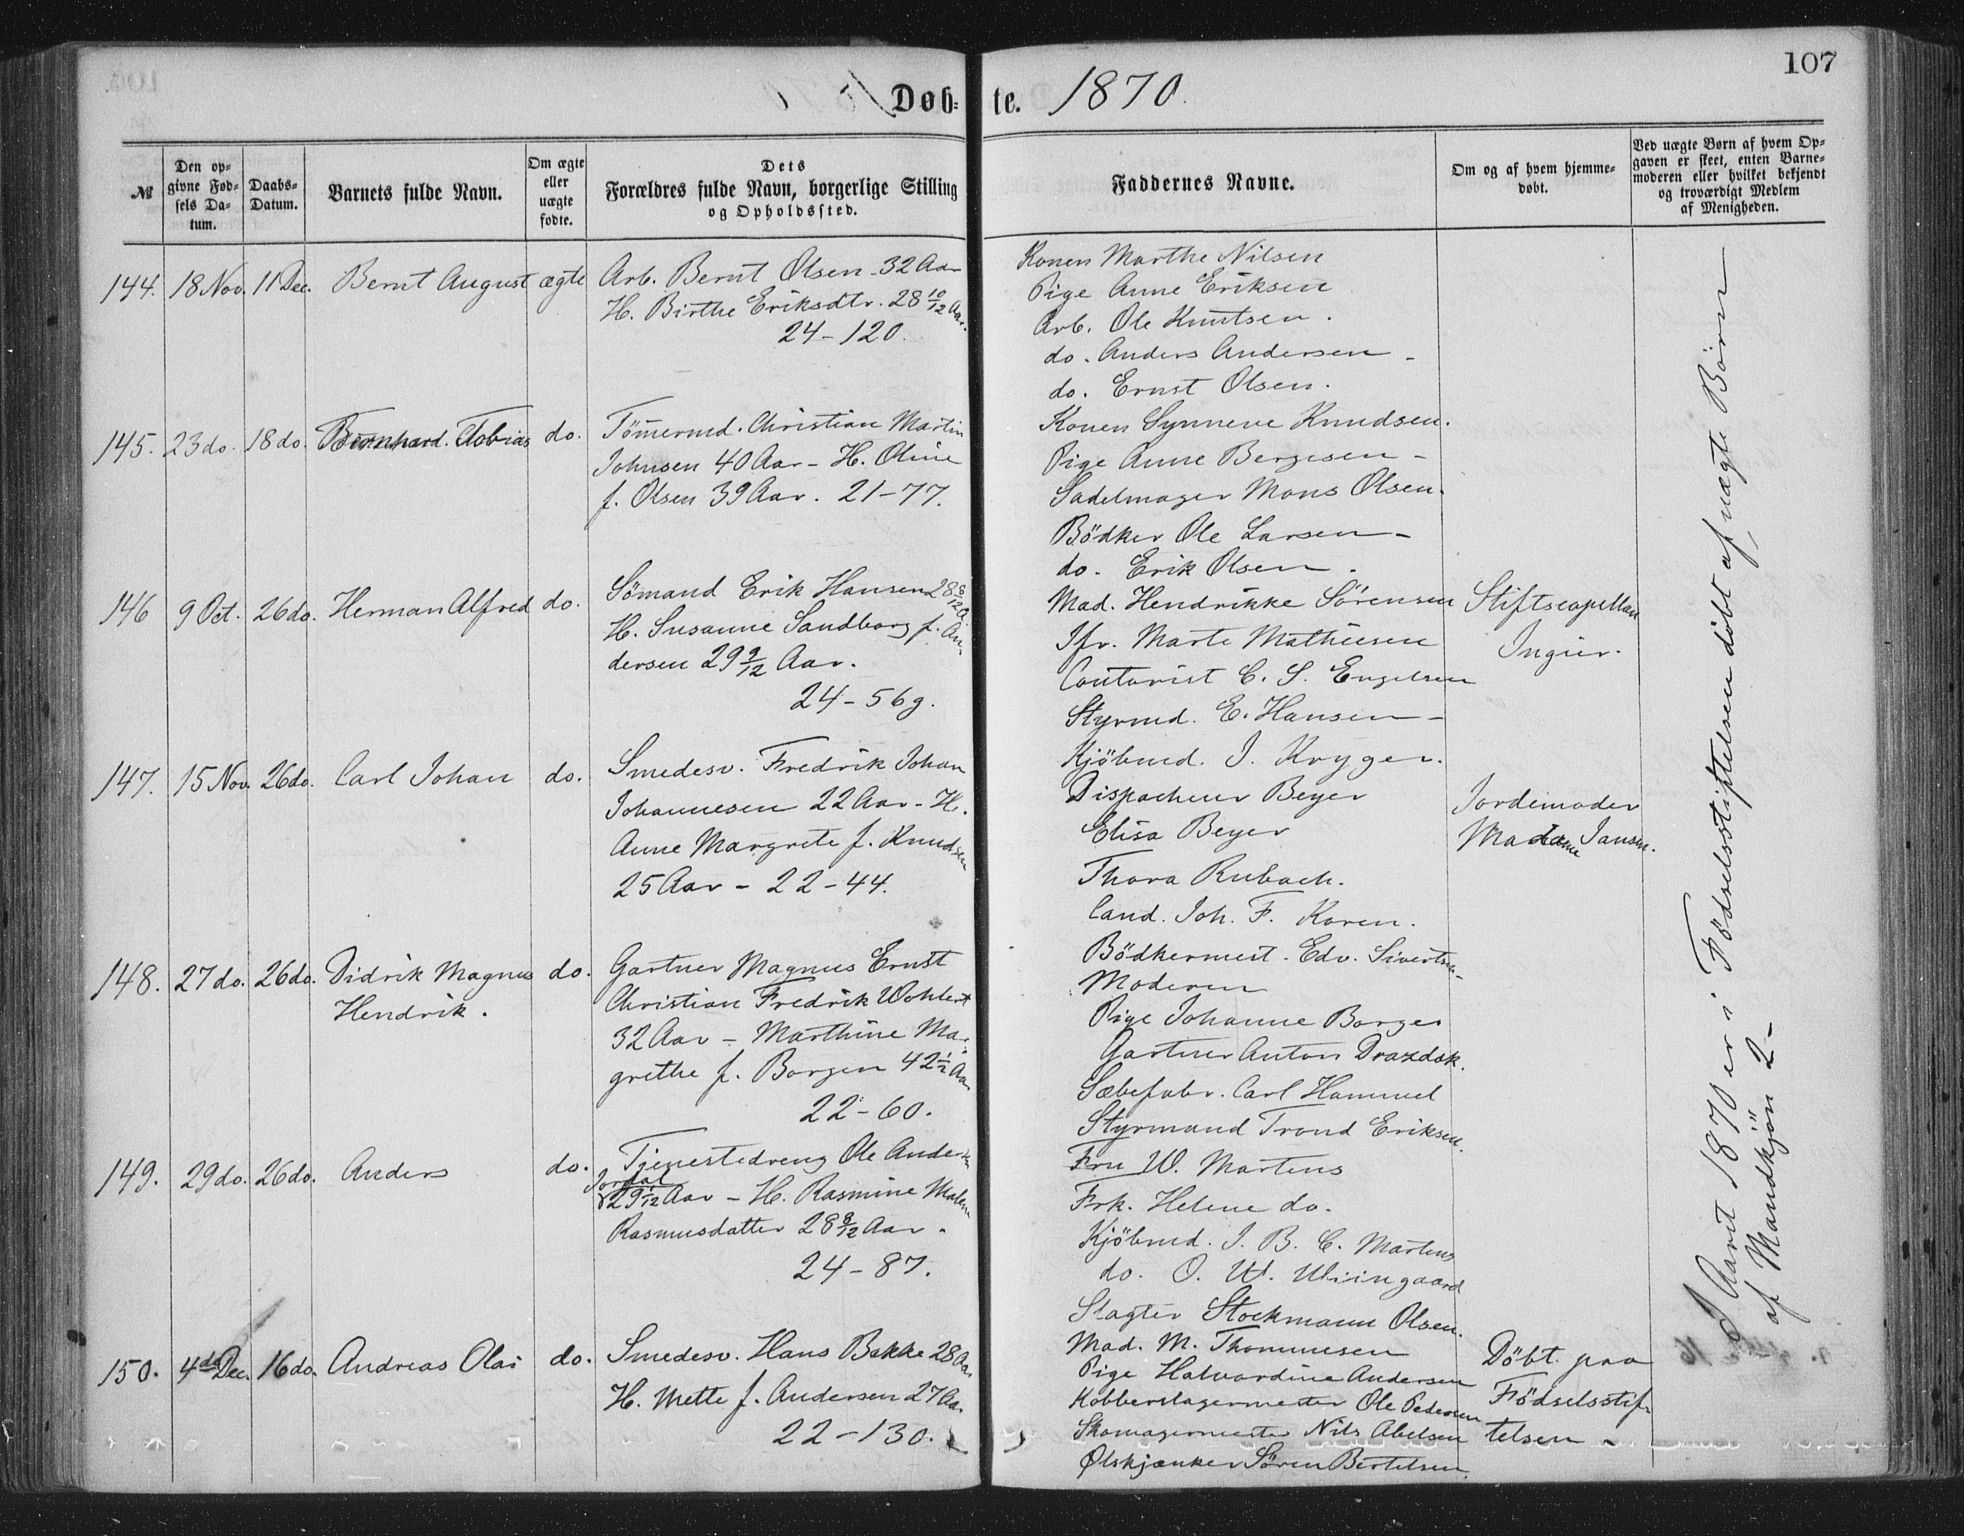 107
Døb-te. 1870.
№
Den opgivne Fødsels Datum.
Daabs-Datum.
Barnets fulde Navn.
Om ægte eller uægte fødte.
Dets Forældres fulde Navn, borgerlige Stilling og Opholdssted.
Faddernes Navne.
Om og af hvem hjemmedøbt.
Ved uægte Børn af hvem Opgaven er skeet, enten Barnemoderen eller hvilket bekjendt og troværdigt Medlem af Menigheden.
144. 18 Nov. 11 Dec. Bernt August ægte
Arb. Bernt Olsen - 32 Aar
H. Birthe Eriksdtr. 28 10/12 Aar.
24 - 120.
Konen Marthe Nilsen
Pige Anne Eriksen
Arb. Ole Knutsen.
do. Anders Andersen -
do. Ernst Olsen.
145. 23 do. 18 do. Bernhard Tobias do.
Tömermd. Christian Martin
Johnsen 40 Aar - H. Oline
f. Olsen 39 Aar. 21 - 77.
Konen Synneve Knudsen.
Pige Anne Bergesen -
Sadelmager Mons Olsen.
Bödker Ole Larsen -
do. Erik Olsen.
146 9 Oct. 26 do. Herman Alfred do.
Sömand Erik Hansen 28 8/12 A.
H. Susanne Sandborg f. An-
dersen 29 9/12 Aar.
24 - 56g.
Mad. Hendrikke Sörensen
Jfr. Marte Mathiesen
Contorist C. S. Engelsen
Styrmd. E. Hansen -
Kjöbmd. J. Kryger.
Stiftscapellan
Ingier.
147. 15 Nov. 26 do. Carl Johan do.
Smedesv. Fredrik Johan
Johannesen 22 Aar - H.
Anne Margrete f. Knudsen
25 Aar - 22 - 44.
Dispacheur Beyer
Elisa Beyer
Thora Rubach.
Cand. Joh. F. Koren.
Bödkermest. Edv. Sivertsen
Jordemoder
Madame Jansen.
148. 27 do. 26 do. Didrik Magnus do.
Hendrik.
Gartner Magnus Ernst
Christian Fredrik Wohlert
32 Aar - Marthine Mar-
grethe f. Borgen 42 1/2 Aar
22 - 60.
Moderen
Pige Johanne Borgen
Gartner Anton Drazdsk.
Sæbefabr. Carl Hammel
Styrmand Trond Eriksen.
149. 29 do. 26 do. Anders do.
Tjenestedreng Ole Andersen
Jordal
29 1/12 Aar - H. Rasmine Malene
Rasmusdatter 28 8/12 Aar.
24 - 87.
Fru W. Martens
Frk. Helene do.
Kjöbmd. J. B. C. Martens
do. O. W. Wiingaard
Slagter Stockmann Olsen.
150. 4de Dec. 16 do. Andreas Olai do.
Smedesv. Hans Bakke 28 Aar
H. Mette f. Andersen 27 Aar.
22 - 130.
Mad. M. Thommesen
Pige Halvardine Andersen
Kobberslagermester Ole Pedersen
Skomagermester Nils Abelsen
Ølskjænker Sören Bertelsen.
Döbt paa
Födselsstif-
telsen.
I Aaret 1870 er i Fødselsstiftelsen døbt af uægte Børn
af Mandkjön 2 -